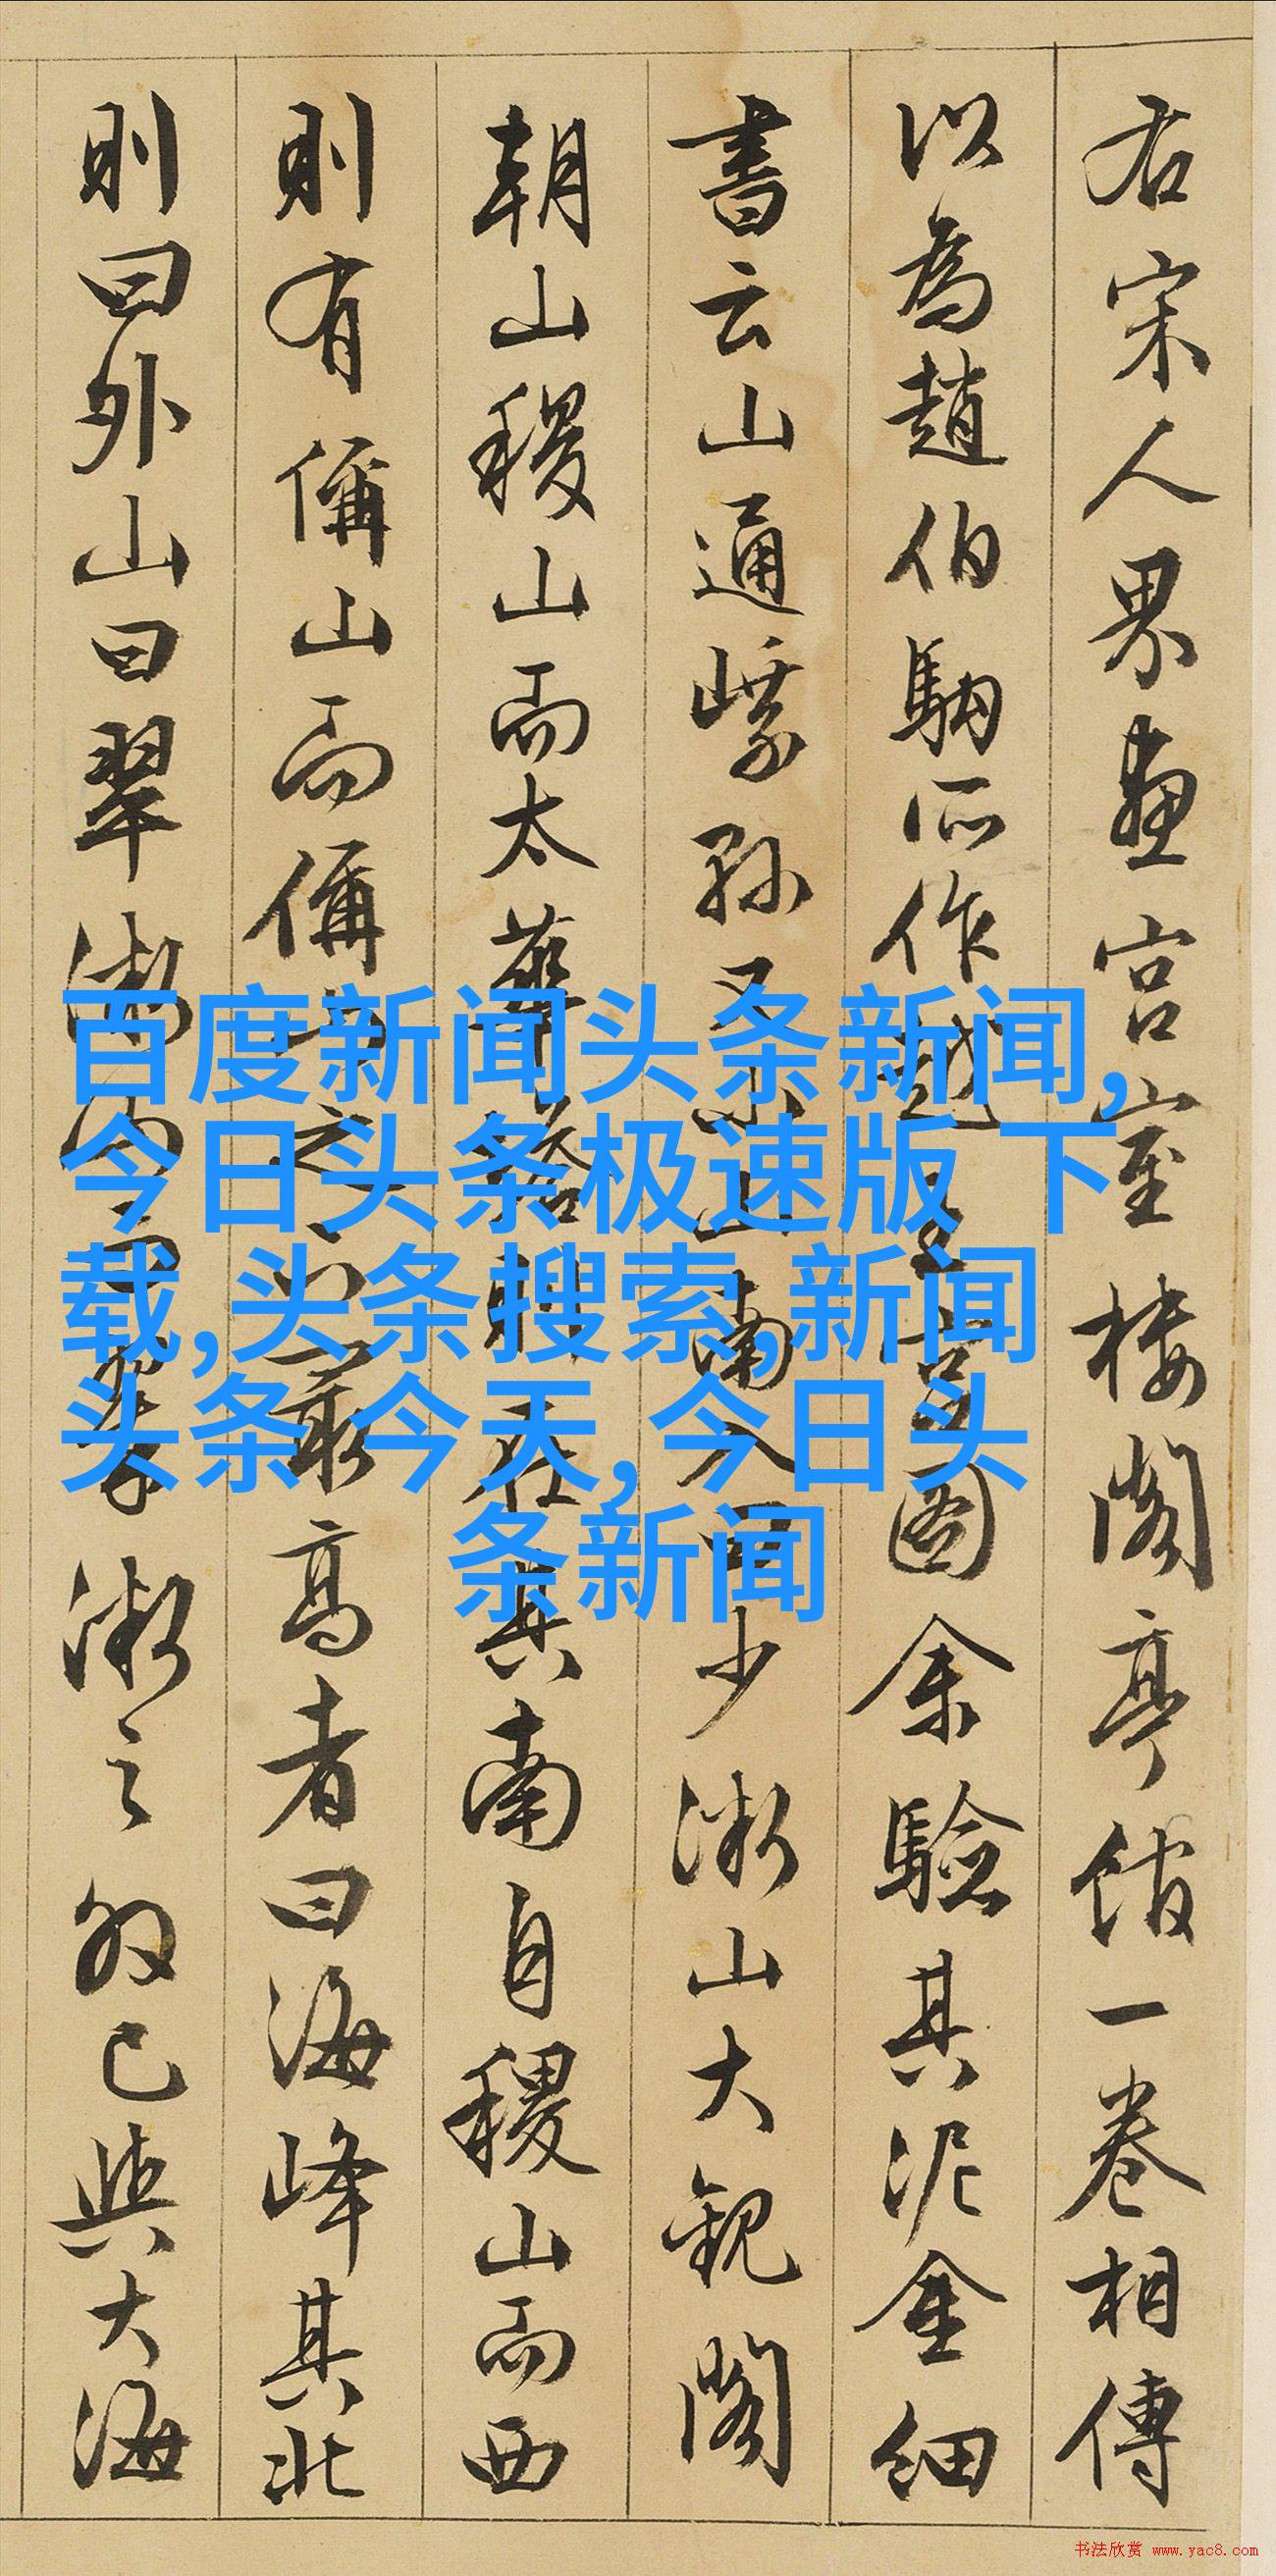 右宋人界畫宮室樓閣亭館一卷相傳
以為趙伯駒所作越王宮圖余驗其泥金細
書云山通嶧孫又山南入四少微山大觀閣
朝山稷山而太華在其南自稷山而西
則有偁山而偁之最高者曰海峰其北
則曰外山曰翠微翠微之外已與大海
百度新闻头条新闻,
今日头条极速版 下
载,头条搜索,新闻
头条 今天,今日头
条新闻
书法欣赏 www.yac8.com